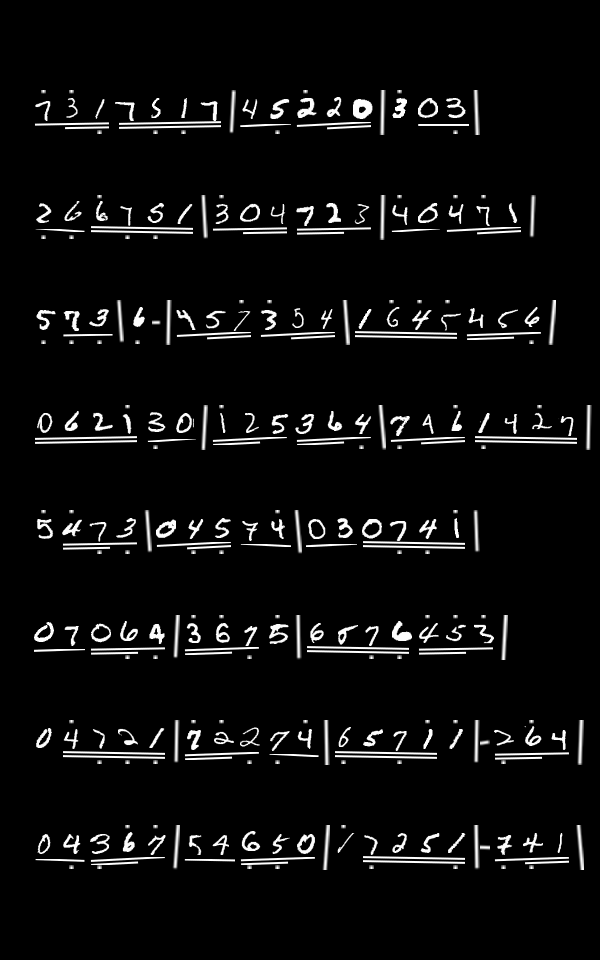 7317517|45220|303
266751|304723|40471
573|6-|457354|1645456
062130|125364|7461427
5473|04574|030741
07064|3675|6576453
04721|72274|65711|-264
04367|54650|17251|-741